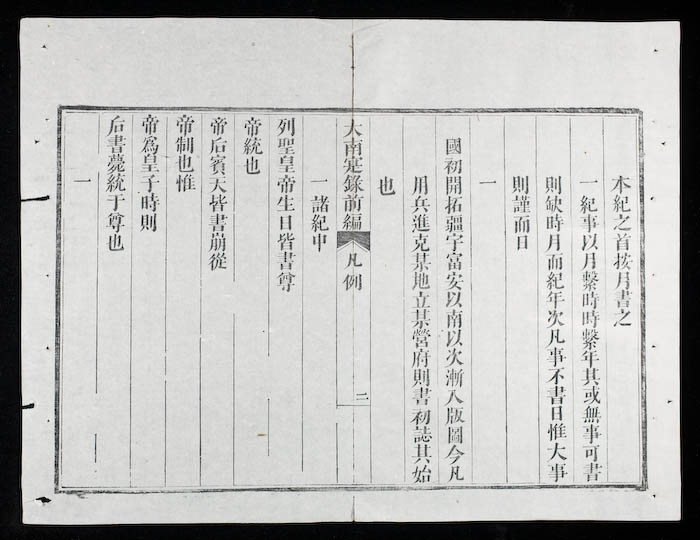 本紀之首按月書之
一紀事以月繫時時繫年其或無事可書
則缺時月而紀年次凡事不書日惟大事
則謹而日
一
國初開拓疆宇富安以南以次漸入版圖今凡
用兵進克某地立某營府則書初誌其始
也
大南寔錄前編 凡例 二
一諸紀中
列聖皇帝生日皆書尊
帝統也
帝后賓天皆書崩從
帝制也惟
帝為皇子時則
后書薨統于尊也
一